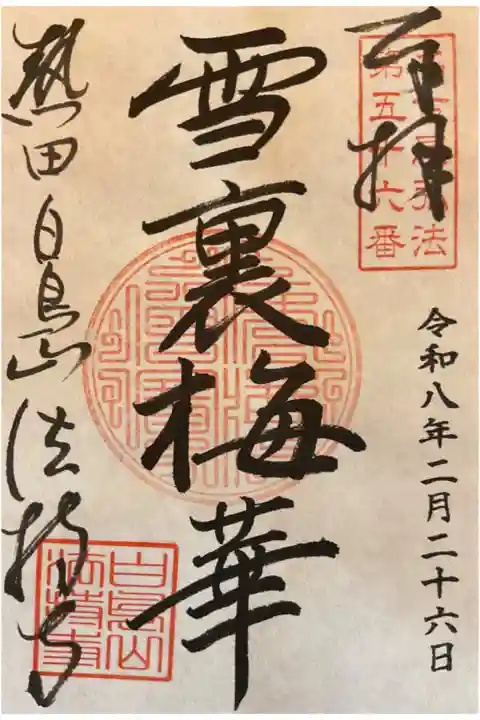 奉拝
弘法
第五十六番
令和八年二月二十六日
雪裏梅華
熱田白鳥山法持寺
白鳥山
法持寺